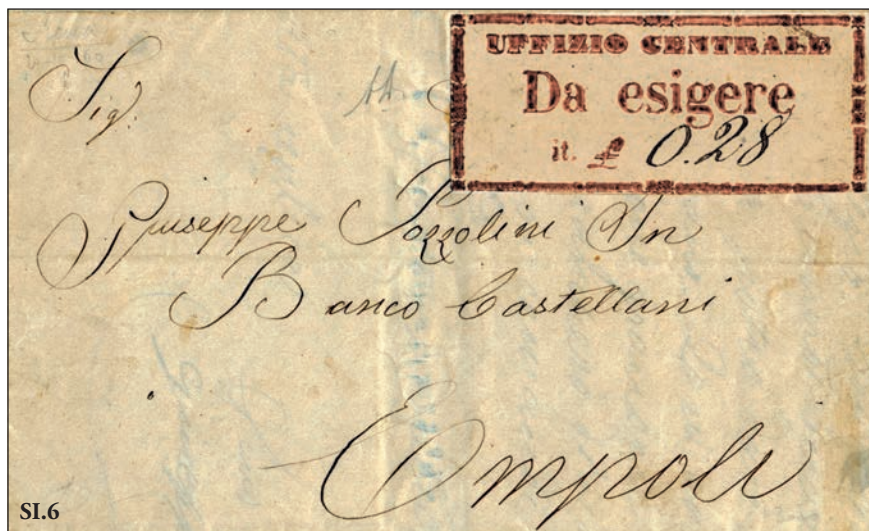 UFFIZIO CENTRALE
Da esigere
it. £ 0.28
Sig.
Giuseppe Pozzolini In
Banco Castellani
Empoli
SI.6